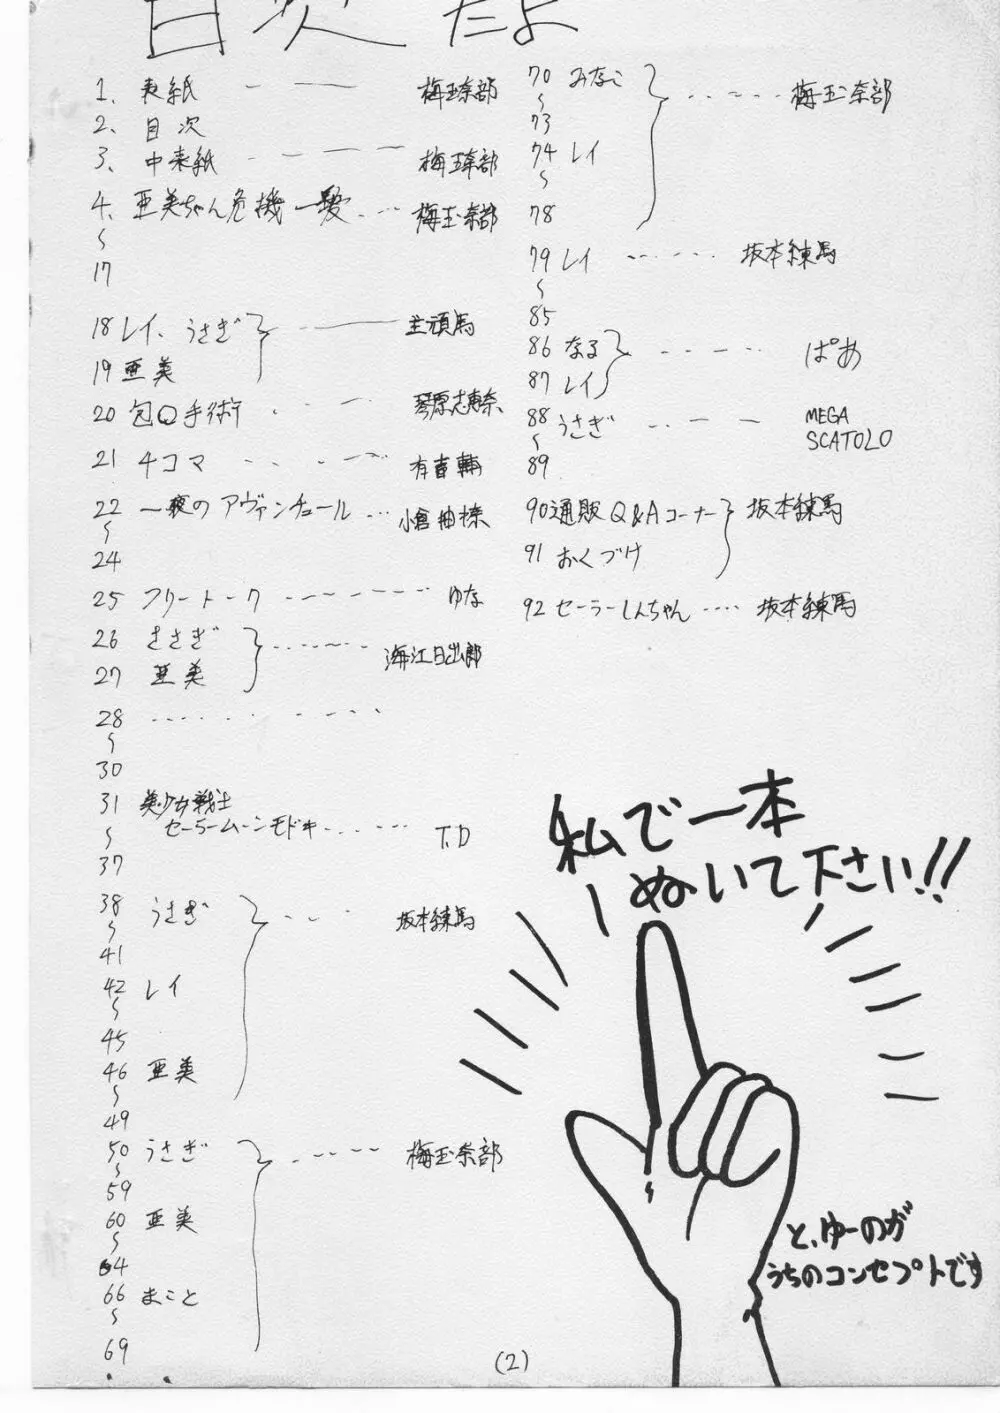 目次だよ
1、表紙 梅玉奈部
2、目次
3、中表紙 梅玉奈部
4、亜美ちゃん危機一髪 梅玉奈部
〜
17
18 レイ、うさぎ 主頑馬
19 亜美
20 包Q手術 琴原志恵奈
21 4コマ 有吉輔
22 一夜のアヴァンチュール 小倉柚榛
〜
24
25 フリートーク ゆな
26 うさぎ 海江日出郎
27 亜美
28
〜
30
31 美少女戦士
セーラームーンモドキ T.D
〜
37
38 うさぎ 坂本練馬
〜
41
42 レイ
〜
45
46 亜美
〜
49
50 うさぎ 梅玉奈部
〜
59
60 亜美
〜
64
66 まこと
〜
69
70 みなこ 梅玉奈部
〜
73
74 レイ
〜
78
79 レイ 坂本練馬
〜
85
86 なる ぱあ
87 レイ
88 うさぎ MEGA
SCATOLO
〜
89
90 通販Q&Aコーナー 坂本練馬
91 おくづけ
92 セーラーしんちゃん 坂本練馬
私で一本
ぬいて下さい!!
と、ゆーのが
うちのコンセプトです
(2)